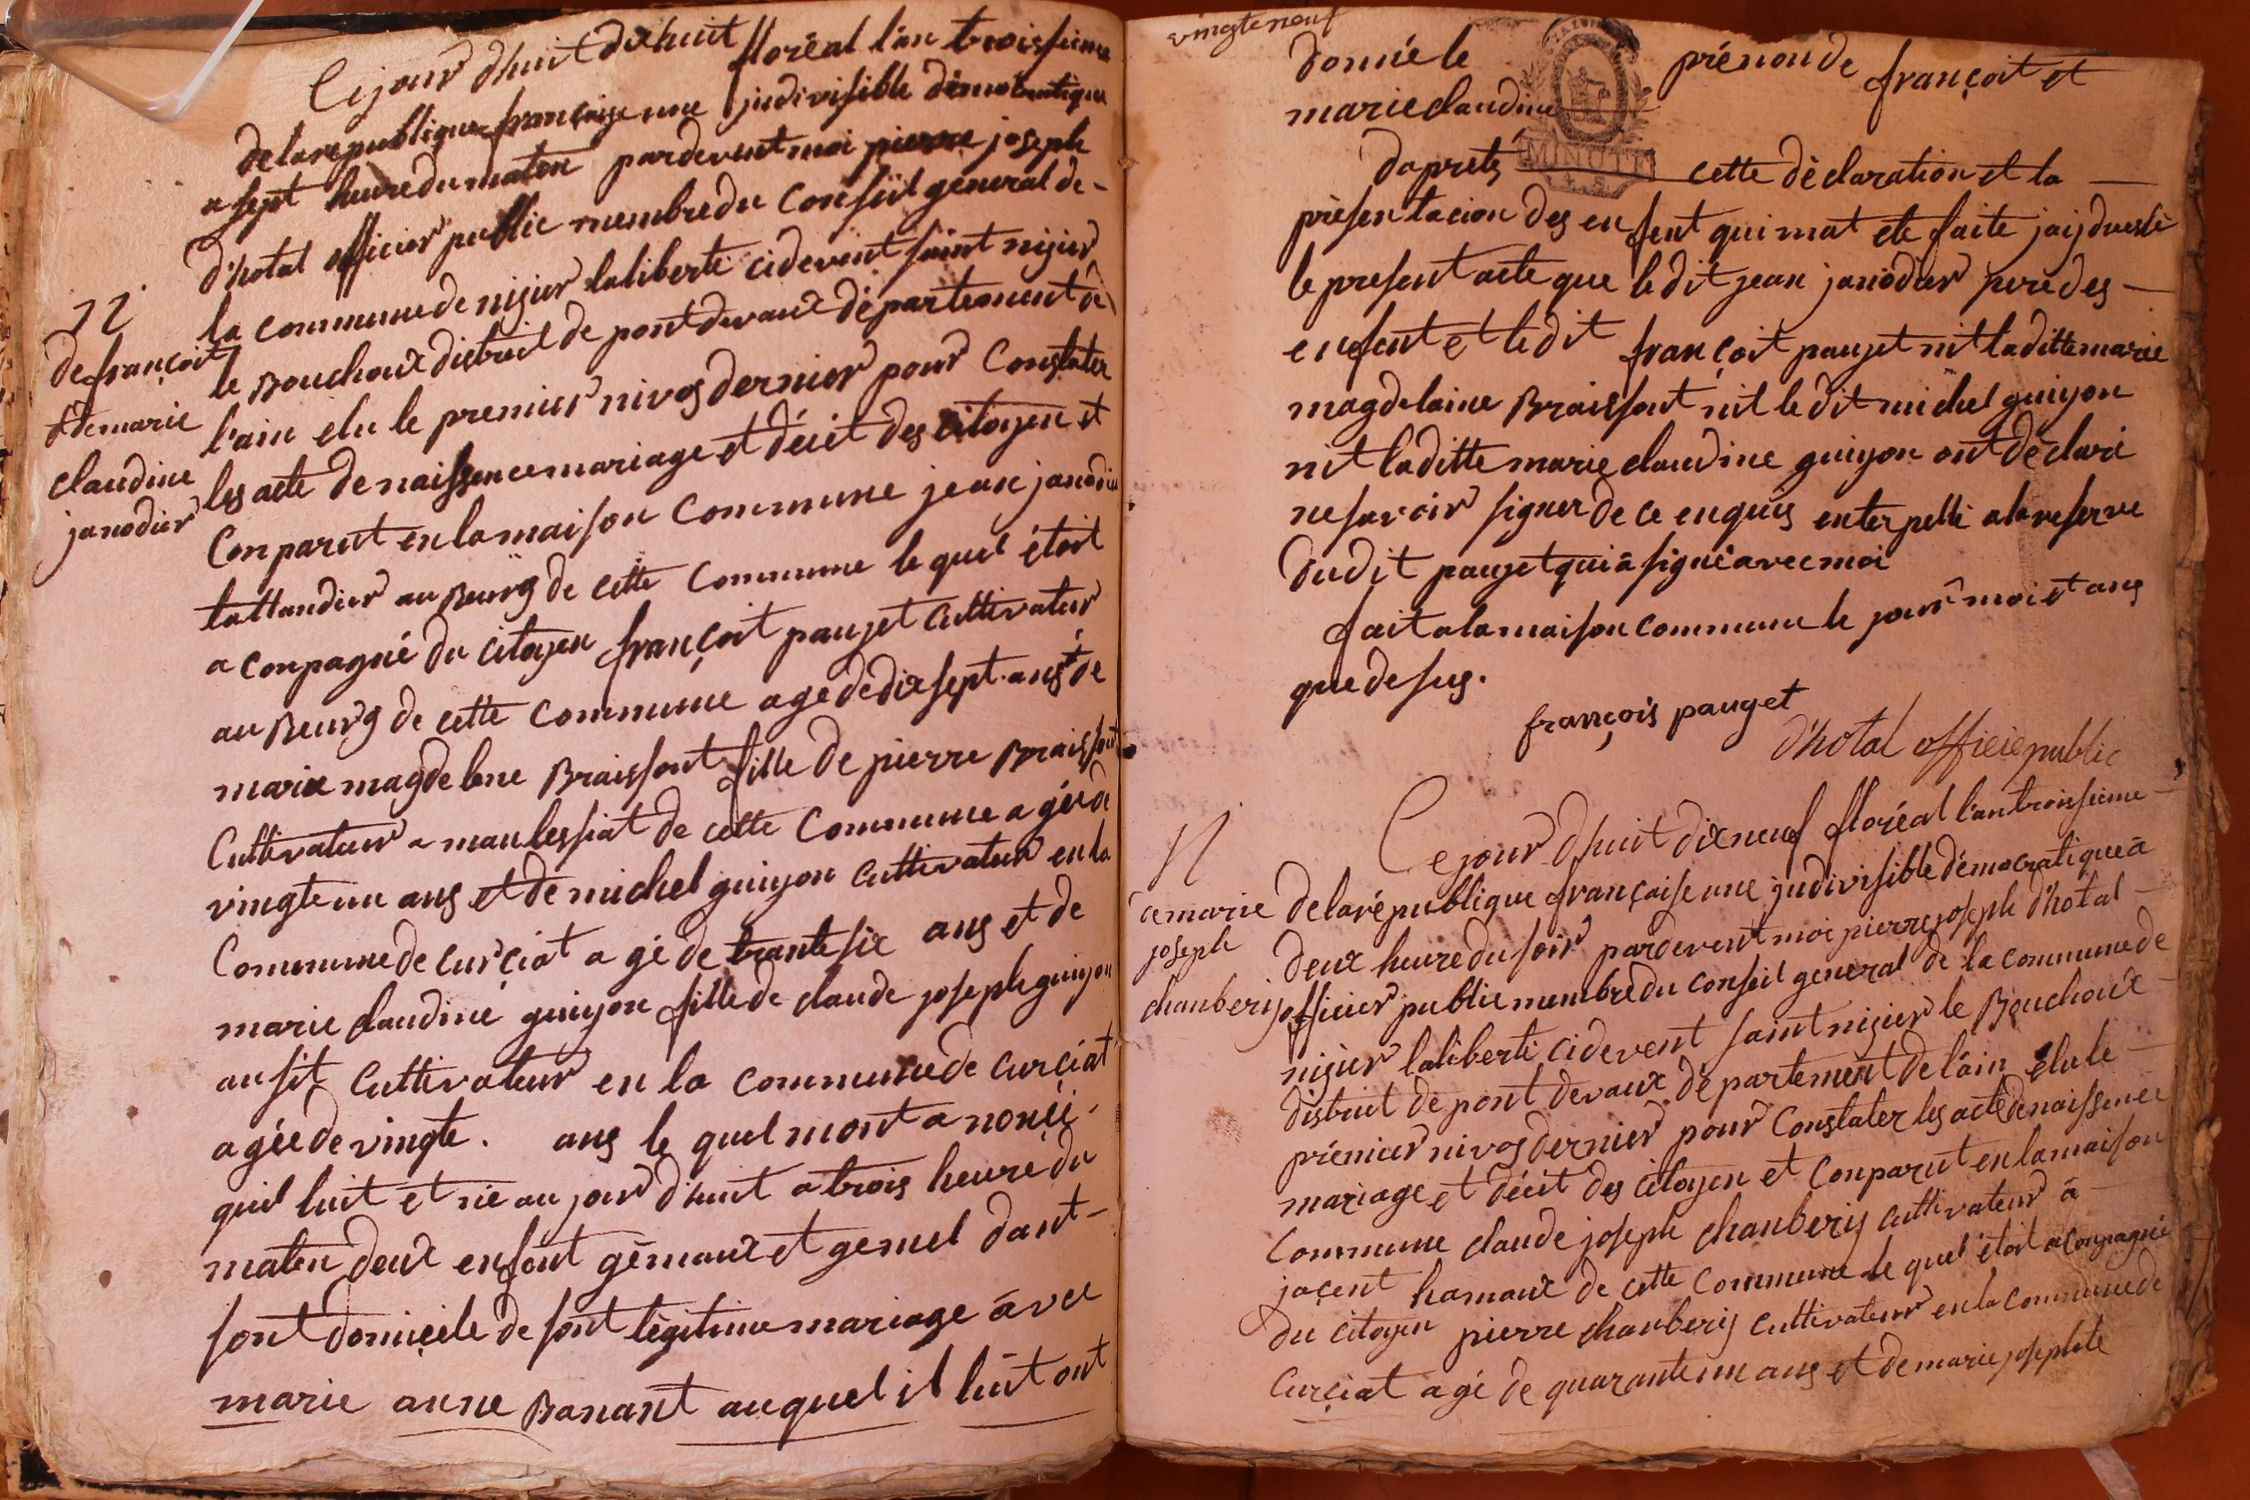 Ce jour dhuit dixhuit floréal l'an troissieme
de la republique française une jndivisible démocratique
a sept heure du maten pardevent moi pierre joseph
d'hotal officier public membre du Conseil géneral de -
la commune de nisier laliberté cidevent saint nisier
le Bouchoux distruit de pont devaux département de
l'ain elu le premier nivos dernier pour Constater
les acte de naissence mariage et décit des citoyen et
Conparut en la maison Commune jean janodier
tallandier au Beurg de cette Commune le quel étoit
a conpagné du citoyen françoit paujet Cultivateur
au Beurg de cette Commune age de dix sept ans et de
marie magdelene Braissont fille de pierre Braissont
Cultivateur a manlessiat de cette Commune agée de
vingte un ans et de michel guiyon Cultivateur en la
Commune de curçiat agé de trante six ans et de
marie claudine guiyon fille de claude joseph guiyon
ausit Cultivateur en la commune de curçiat
agée de vingte . ans le quel mont a noncé
quil luit et nie au jour d'huit a trois heure du
maten deux enfent gémaux et gemel dant -
sont domiçile de sont légitime mariage àvec
marie anne Banant auquel il luit ont
N
de françoit
et de marie
claudine
janodier
vingte neuf
donnée le prénon de françoit et
marie claudine
MINUTE
daprets cette déclaration et la
présentacion des enfent qui mat ete faite jaij dressé
le present acte que le dit jean janodier pere des -
enfent et le dit françoit paujet nit laditte marie
magdelaine Braissont nit le dit michel guiyon
nit laditte marie claudine guiyon ont déclaré
ne savoir signer de ce enquis enterpellé a la reserve
dudit paujet qui à signé avec moi
fait a la maison commune le jour moi et ans
que desus.
françois pauget
d'hotal officie public
Ce jour dhuit dix neuf floréal l'an troissieme
de la république française une jndivisible démocratique à
deux heure du soir pardevent moi pierre joseph d'hotal
officier public membre du conseil general de la commune de
nisier laliberté cidevent saint nisier le Bouchoux
distruit de pont devaux département de l'ain elu le
prémier nivos dernier pour Constater les acte de naissence
mariage et décit des citoyen et Conparut en la maison
Commune claude joseph chanberij cultivateur à
jaçent hamaux de cette Commune le quel étoit aconpagné
du citoyen pierre chanberij cultivateur en la commune de
Curçiat agé de quarante un ans et de marie josephete
N
de marie
joseph
chanberij